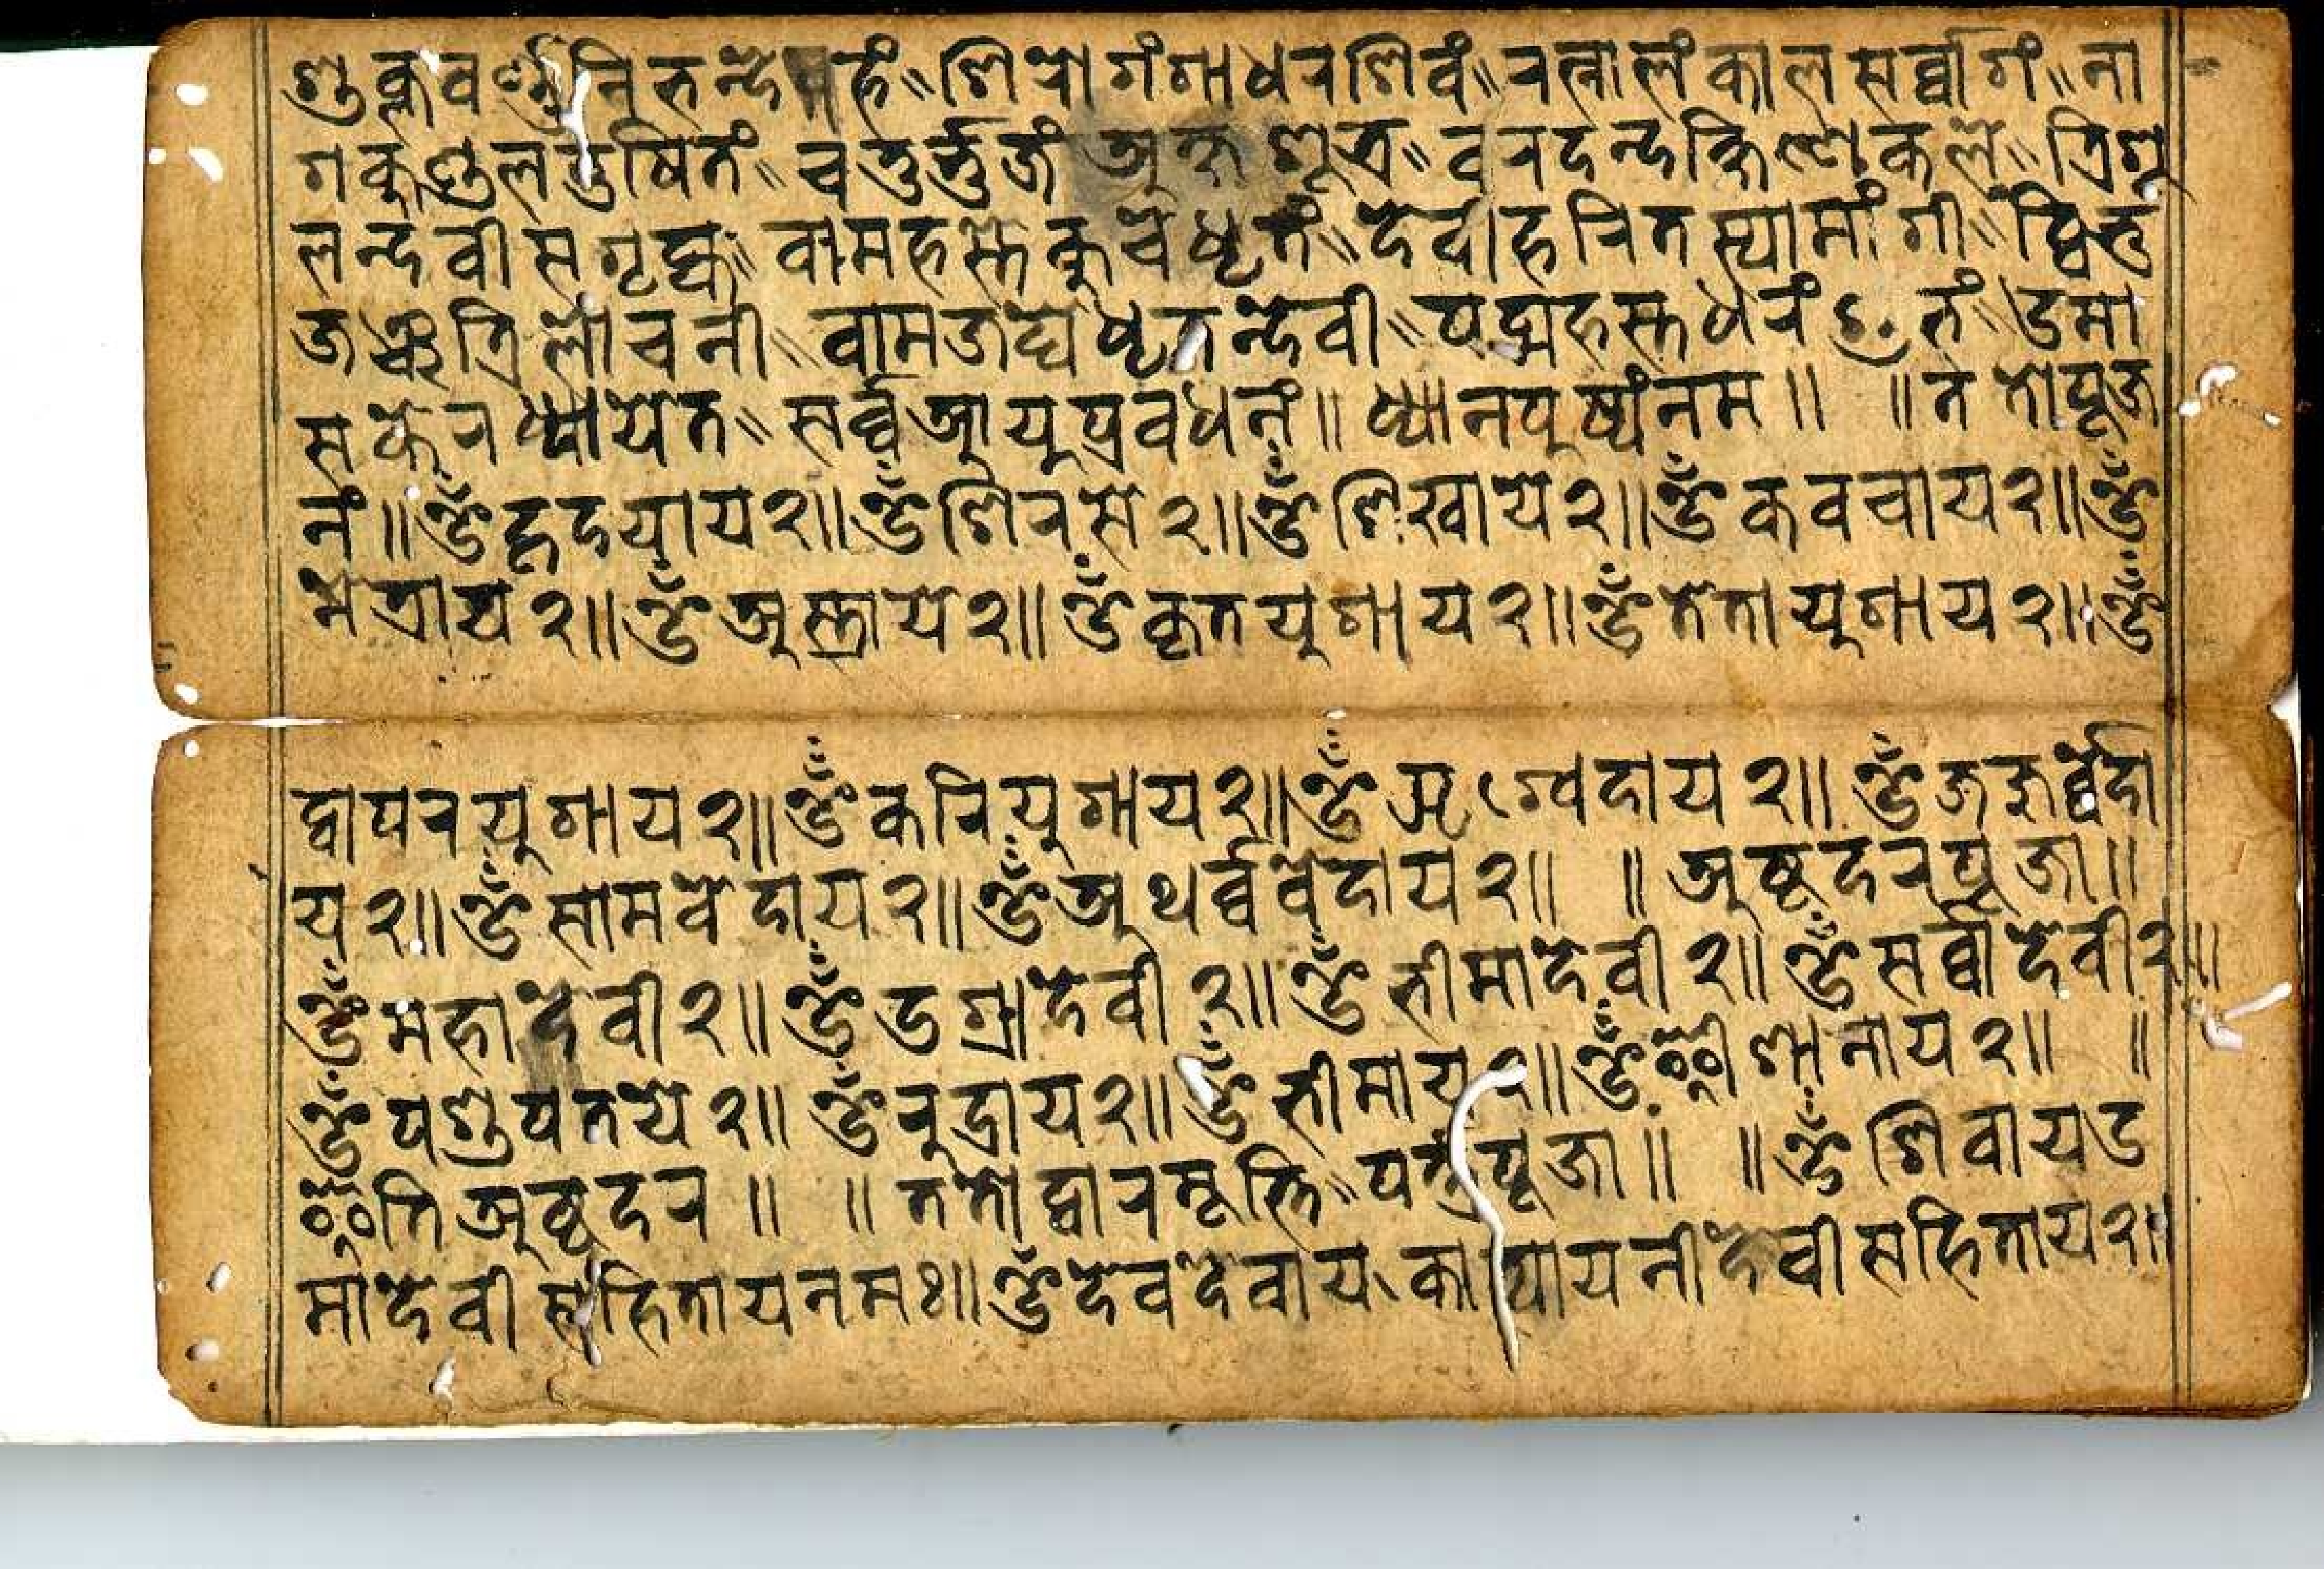 शुक्लवर्ण्णत्रिभन्देहं॥ शिरोगंगाधरशिवं॥ रत्नालंकालसर्व्वागं॥ ना
गकुण्डलभुषितं॥ चतुर्भुजं अक्षशूत्र॥ वरदन्दक्षिणकले॥ त्रिशू
लन्देवीसगृह्य॥ वामहस्तेकुचेधृतं॥ देवीहरितस्यामांगी॥ द्विभु
जञ्चत्रिलोचनी॥ वामजघेधृतन्देवी॥ पद्महस्तधरं भुतं॥ उमा
सकेरध्यायेत॥ सर्व्वआयूप्रवर्धनं॥ ध्यानपुष्पंनम॥ ॥ ततोपूज
नं॥ ॐ हृदयाय२॥ ॐ शिरसे२॥ ॐ शिखाये२॥ ॐ कवचाय२॥ ॐ
नेत्राय२॥ ॐ अस्त्राये२॥ ॐ कृतयुगाय२॥ ॐ तेतायुगाय२॥ ॐ
द्वापरयुगाय२॥ ॐ करियुगाय२॥ ॐ ऋग्वेदाय२॥ ॐ जजुर्व्वेदा
य२॥ ॐ सामवेदाय२॥ ॐ अथर्व्ववेदाय२॥ ॥ अष्टदरपूजा॥
ॐ महादेवी२॥ ॐ उग्रादेवी२॥ ॐ भीमादेवी२॥ ॐ सर्व्वादेवी२॥
ॐ पशुपतये२॥ ॐ रुद्राय२॥ ॐ भीमाय२॥ ॐ ईशानाय२॥ ॥
इति अष्टदर॥ ॥ ततोद्वारमूर्त्ति॥ पत्रपूजा॥ ॥ ॐ शिवायउ
मादेवीसहितायनमः॥ ॐ देवदेवाय, कात्यायनीदेवीसहिताय२॥